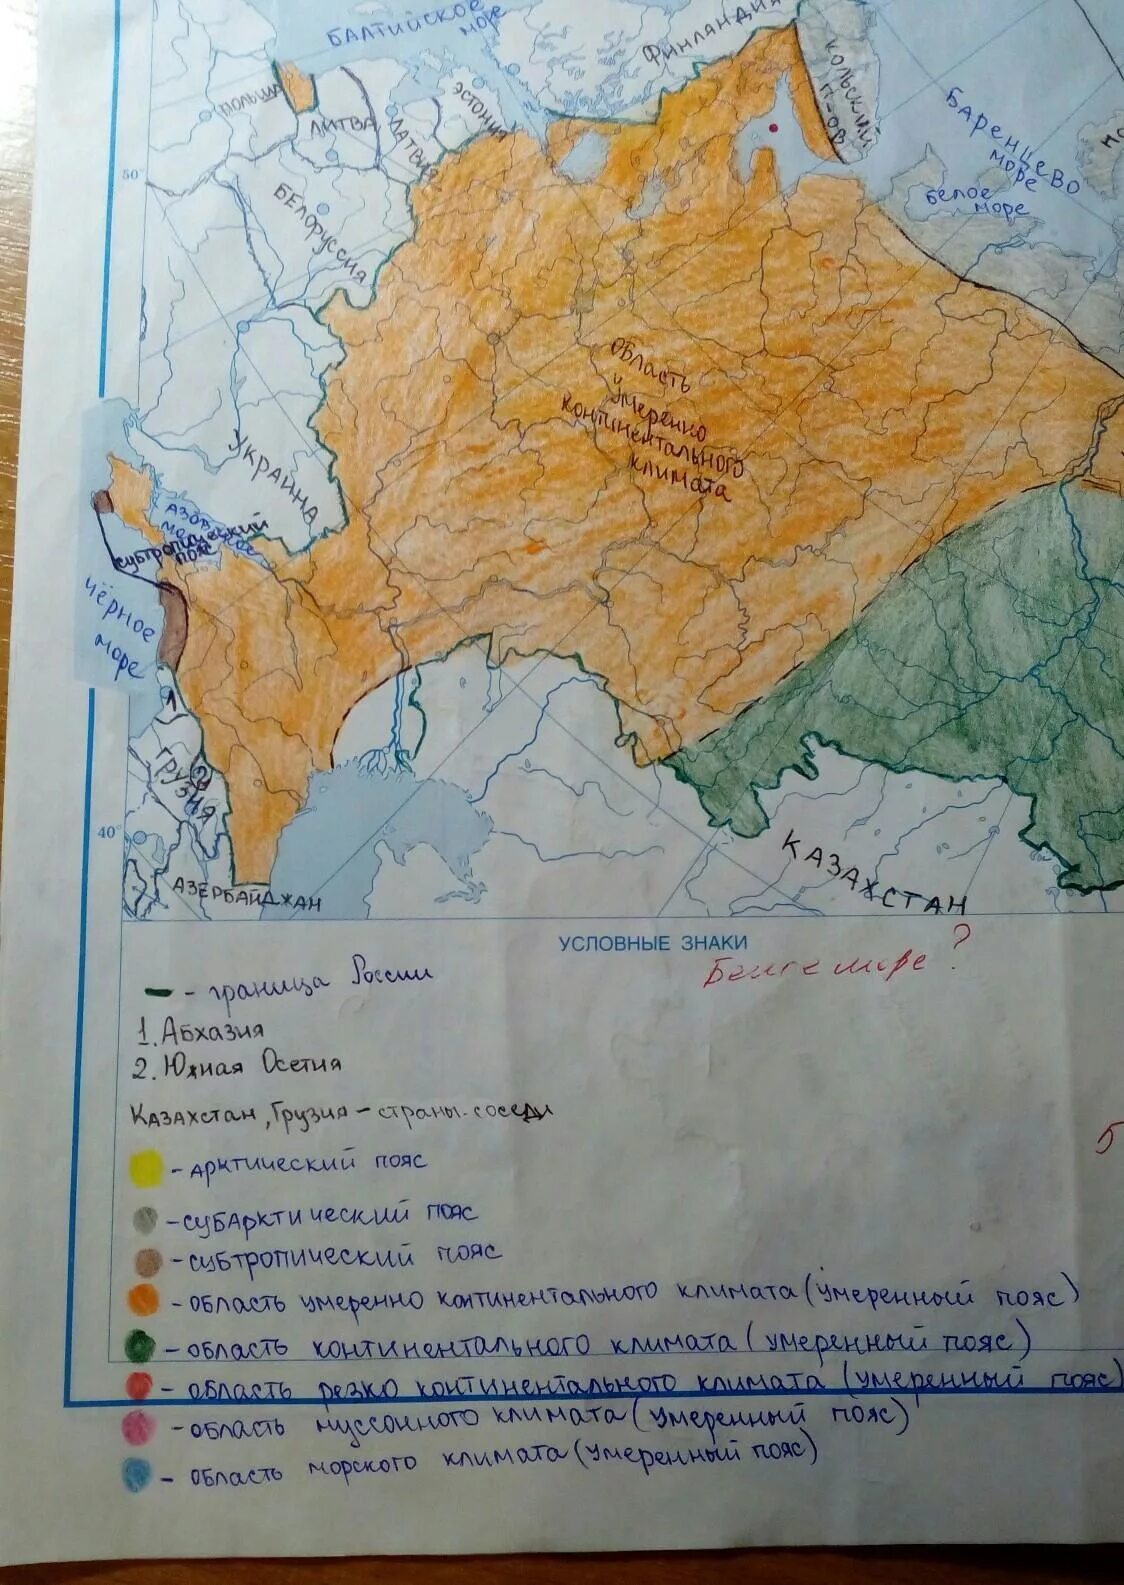 БАЛТИЙСКОЕ
море
Финландия
КОЛЬСКИЙ
П-ОВ
БАРЕНЦЕВО
море
БЕЛОЕ
море
ПОЛЬША
ЛИТВА
ЛАТВИЯ
ЭСТОНИЯ
50°
БЕЛОРУССИЯ
область
умеренно
континентального
климата
УКРАИНА
АЗОВСКОЕ
море
субтропический
пояс
чёрное
море
1
ГРУЗИЯ
2
40°
АЗЕРБАЙДЖАН
КАЗАХСТАН
УСЛОВНЫЕ ЗНАКИ
Белое море?
- граница России
1. Абхазия
2. Южная Осетия
Казахстан, Грузия - страны-соседи
5
- арктический пояс
- субарктический пояс
- субтропический пояс
- область умеренно континентального климата (умеренный пояс)
- область континентального климата (умеренный пояс)
- область резко континентального климата (умеренный пояс)
- область муссонного климата (умеренный пояс)
- область морского климата (умеренный пояс)